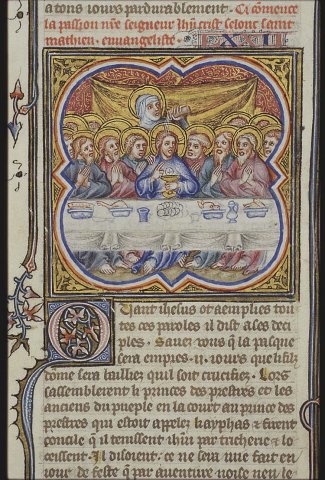 a tons iours pardurablement. Ci cōmence
la passion nr̄e seigneur ihūcrist selonc saint
mathieu. euuangeliste. XXVI
Quant ihesus ot aemplies tou
tes ces paroles il dist a ses deci
ples. Sauez vous q̄ la pasque
sera empres .ij. iours que li filz
dome sera bailliez quil soit crucifiez. Lors
sassemblerent li princes des prestres et les
anciens du pueple en la court au prince des
prestres qui estoit appelez kayphas et firent
concile q̄ il tenissent ihū par tricherie et lo
ceissent. Il disoient. ce ne sera mie fait en
iour de feste q̄ par auenture noise ne